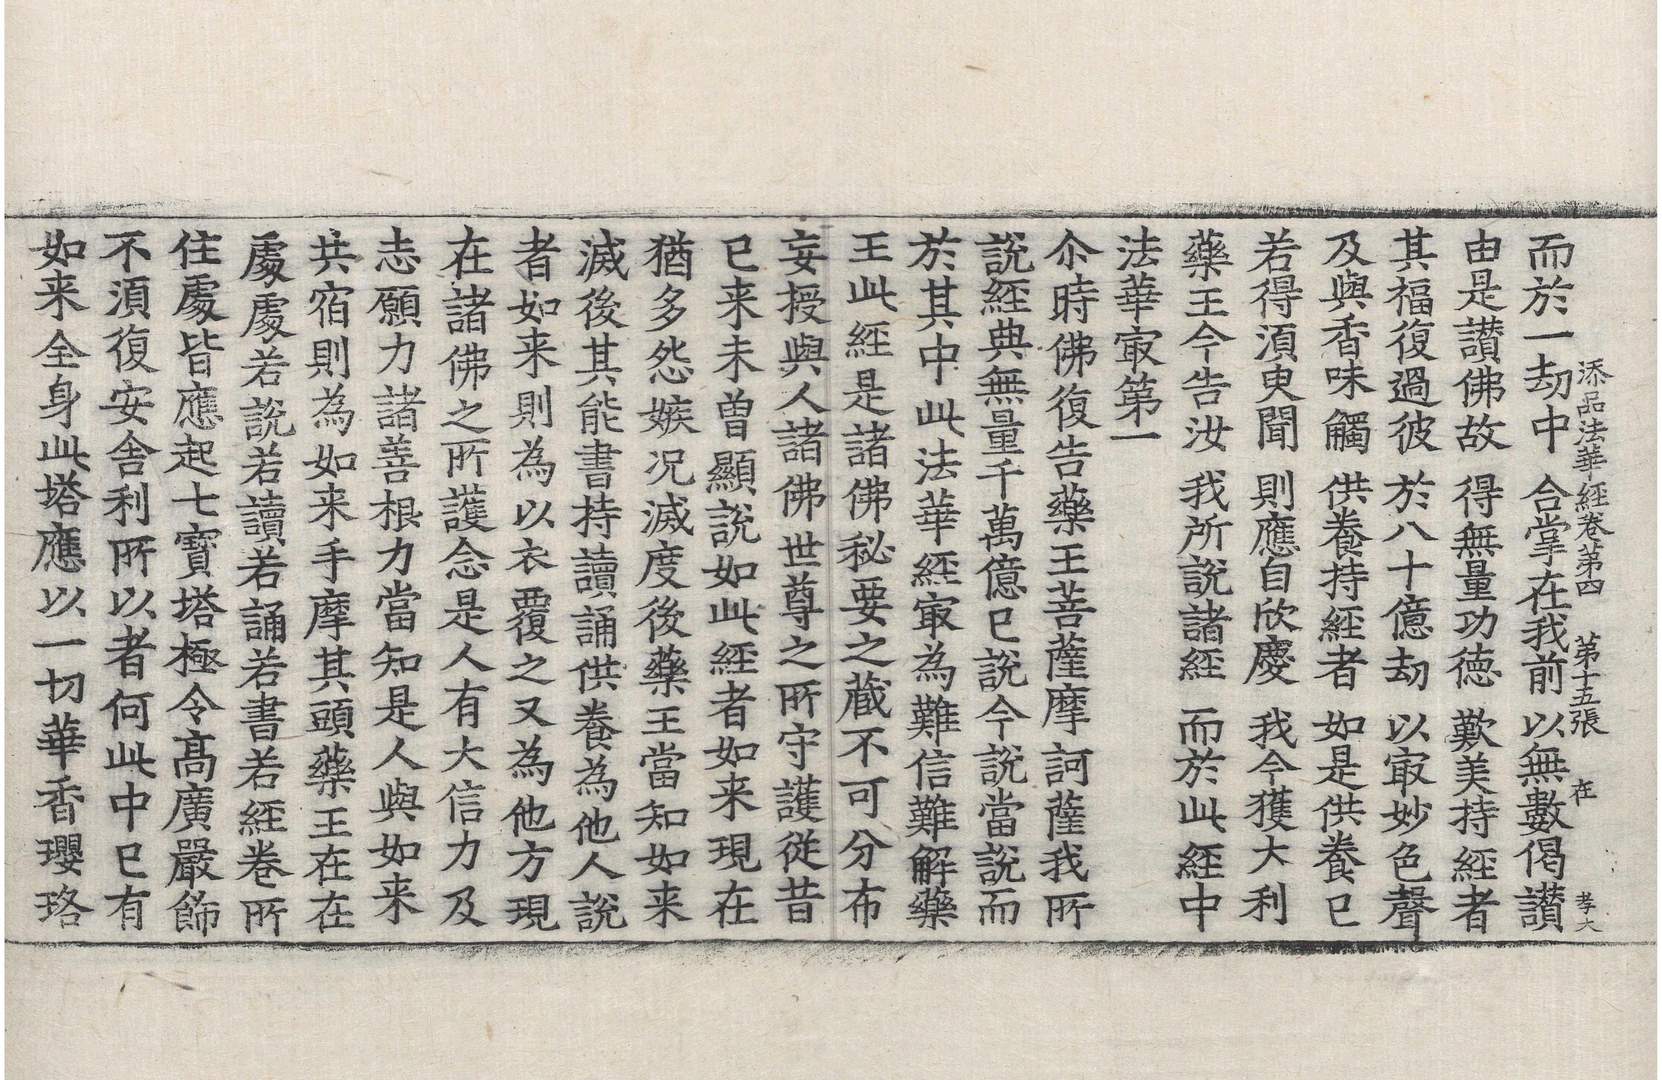 添品法華經卷第四　第十五張　在　孝大
而於一劫中　合掌在我前　以無數偈讃
由是讃佛故　得無量功德　歎美持經者
其福復過彼　於八十億劫　以㝡妙色聲
及與香味觸　供養持經者　如是供養已
若得湏臾聞　則應自欣慶　我今獲大利
藥王今告汝　我所說諸經　而於此經中
法華㝡第一
尒時佛復告藥王菩薩摩訶薩我所
說經典無量千萬億已說今說當說而
於其中此法華經㝡為難信難解藥
王此經是諸佛秘要之藏不可分布
妄授與人諸佛世尊之所守護従昔
已来未曾顯說如此經者如来現在
猶多怨嫉况滅度後藥王當知如来
滅後其能書持讀誦供養為他人說
者如来則為以衣覆之又為他方現
在諸佛之所護念是人有大信力及
志願力諸善根力當知是人與如来
共宿則為如来手摩其頭藥王在在
處處若說若讀若誦若書若經卷所
住處皆應起七寶塔極令髙廣嚴飾
不湏復安舍利所以者何此中已有
如来全身此塔應以一切華香瓔珞